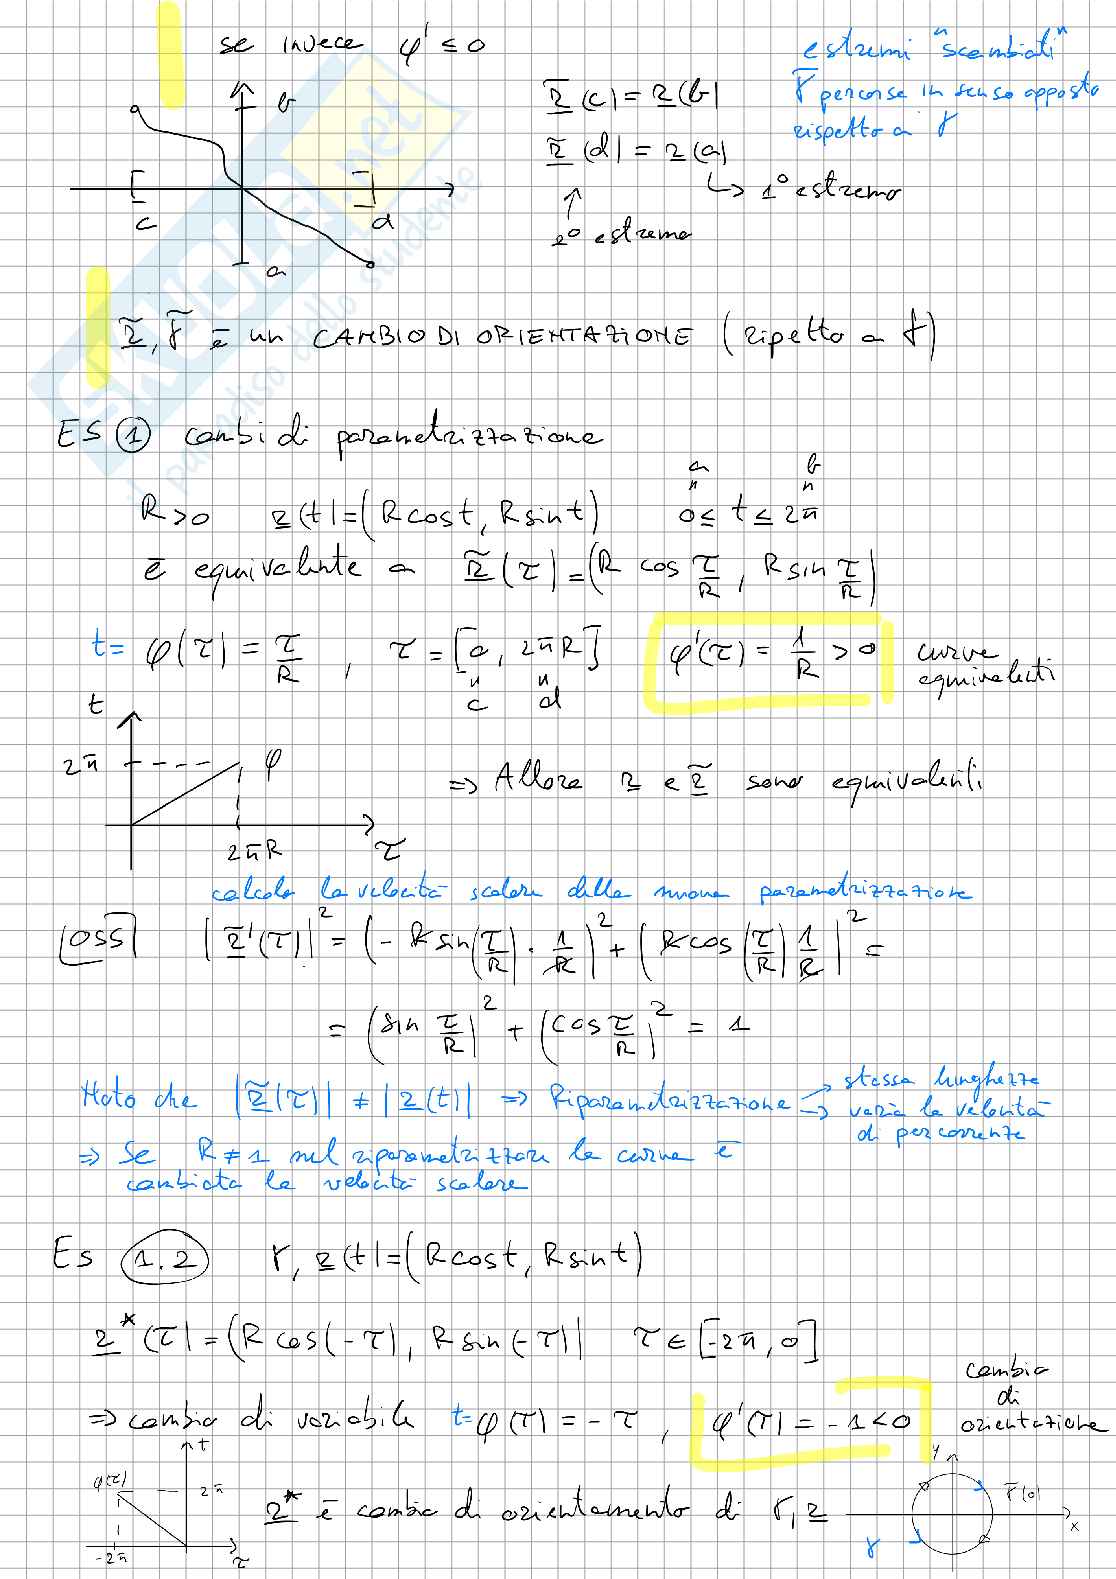 se invece φ' ≤ 0
estremi "scambiati"
γ̃ percorsa in senso opposto
rispetto a γ
b
c
d
a
r̃ (c) = r (b)
r̃ (d) = r (a)
↳ 1° estremo
↑
2° estremo
r̃, γ̃ è un CAMBIO DI ORIENTAZIONE (ripetto a γ)
ES ① cambi di parametrizzazione
a b
R>0 r(t) = (R cos t, R sin t) 0 ≤ t ≤ 2π
è equivalente a r̃(τ) = (R cos τ/R, R sin τ/R)
t = φ(τ) = τ/R , τ = [0, 2πR] φ'(τ) = 1/R > 0 curve equivalenti
c d
t
2π φ
2πR τ
⇒ Allora r e r̃ sono equivalenti
calcolo la velocità scalare della nuova parametrizzazione
OSS |r̃'(τ)|² = (-R sin(τ/R) · 1/R)² + (R cos(τ/R) 1/R)² =
= (sin τ/R)² + (cos τ/R)² = 1
Noto che |r̃(τ)| ≠ |r(t)| ⇒ Riparametrizzazione → stessa lunghezza
→ varia la velocità
di percorrenza
⇒ Se R ≠ 1 nel riparametrizzare la curva è
cambiata la velocità scalare
Es 1.2 γ, r(t) = (R cos t, R sin t)
r*(τ) = (R cos(-τ), R sin(-τ)) τ ∈ [-2π, 0]
⇒ cambio di variabile t = φ(τ) = -τ , φ'(τ) = -1 < 0
cambio
di
orientazione
t
φ(τ) 2π
-2π τ
r* è cambio di orientamento di γ, r
y
r̄(0)
x
γ
SKUOLA.net
il paradiso dello studente